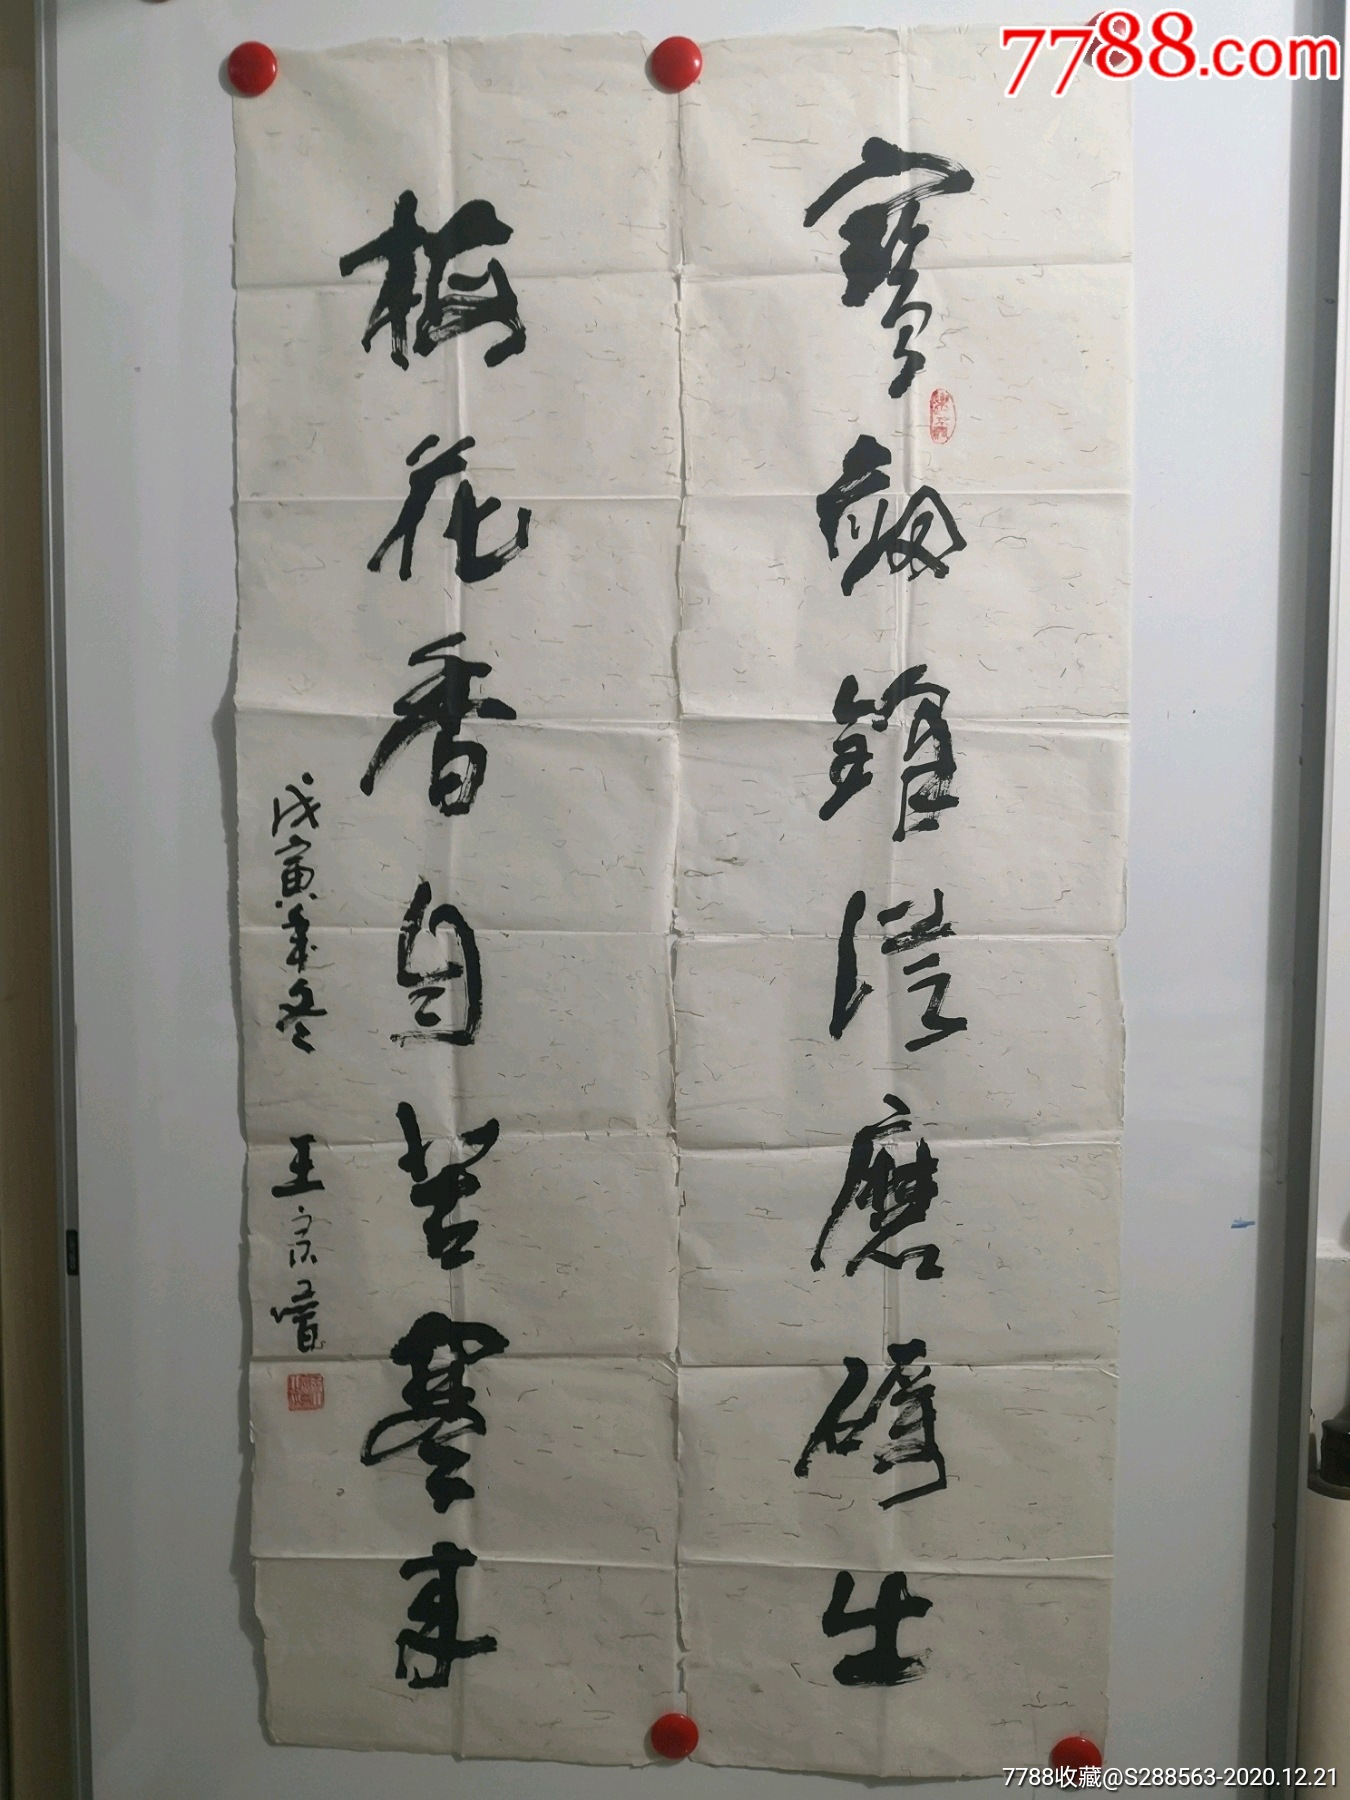 7788.com
寶劍鋒從磨礪出
梅花香自苦寒來
戊寅年冬 王宗
7788收藏@S288563-2020.12.21